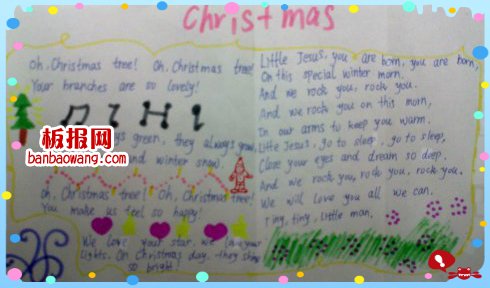 Christmas
Oh, Christmas tree! Oh, Christmas tree!
Your branches are so lovely!
green, they always grow,
and winter snow.
Oh, Christmas tree! Oh, Christmas tree!
You make us feel so happy!
We love your star, we love your
lights. On Christmas day. they shine
so bright!
Little Jesus, you are born, you are born,
On this special winter morn.
And we rock you, rock you,
And we rock you on this morn,
In our arms to keep you warm.
Little Jesus, go to sleep, go to sleep,
Close your eyes and dream so deep.
And we rock you, rock you, rock you,
We will love you all we can.
Tiny, tiny, little man.
板报网
banbaowang.com